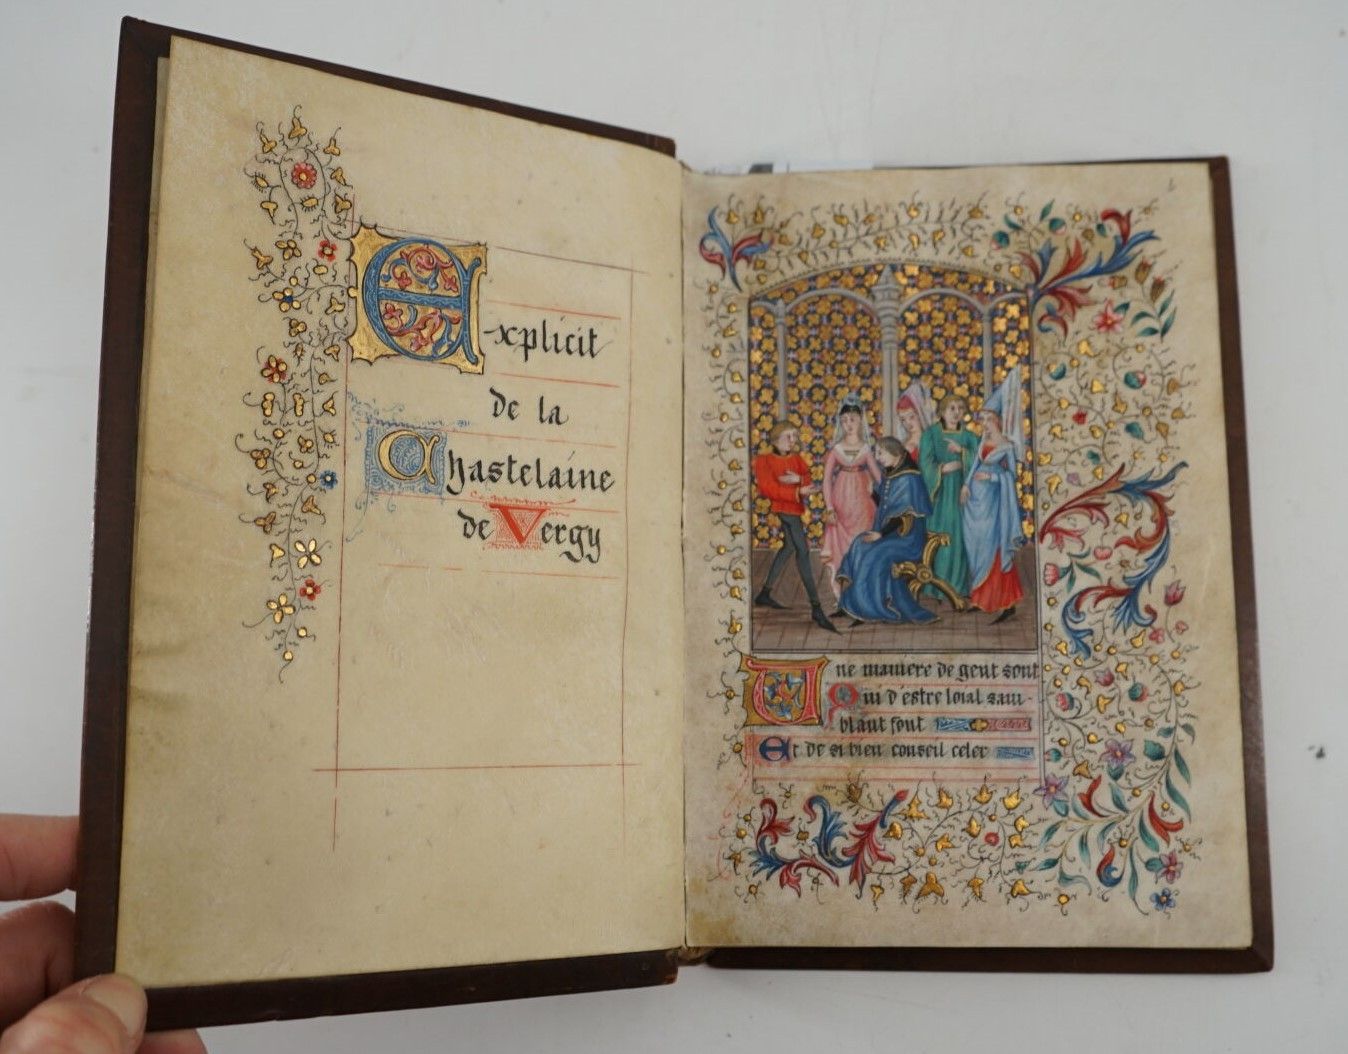 Explicit
de la
Chastelaine
de Vergy
Une maniere de gent sont
Qui d'estre loial sam-
blant font
Et de si bien conseil celer